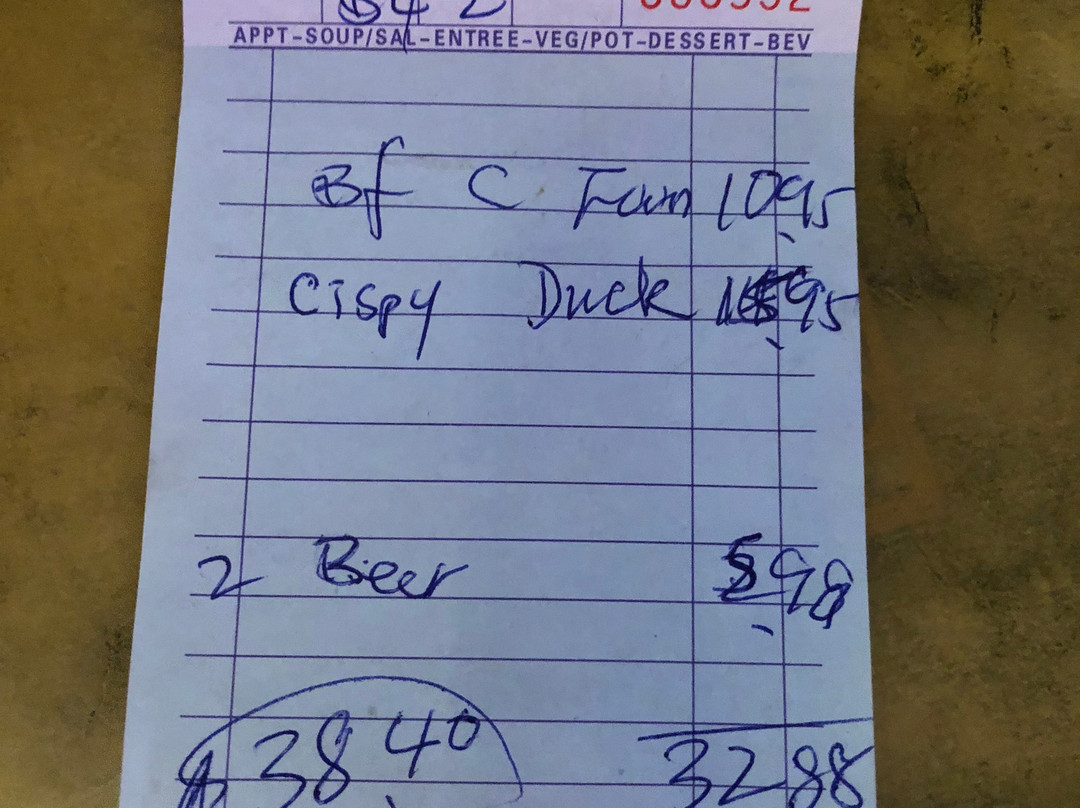 APPT-SOUP/SAL-ENTREE-VEG/POT-DESSERT-BEV
Bf C Fun 10.95
Cispy Duck 15.95
2 Beer 5.98
$38.40 32 88